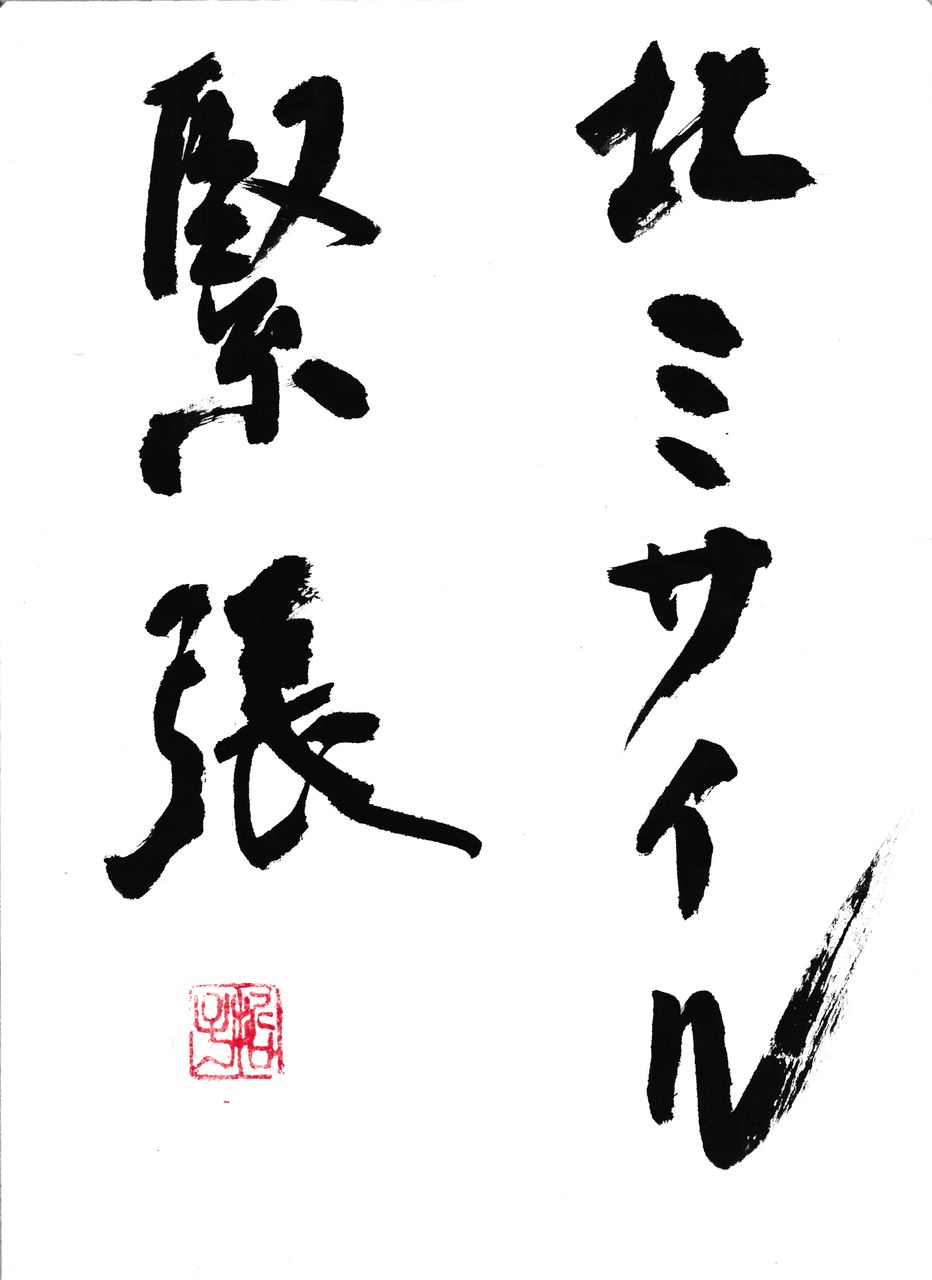 北ミサイル
緊張